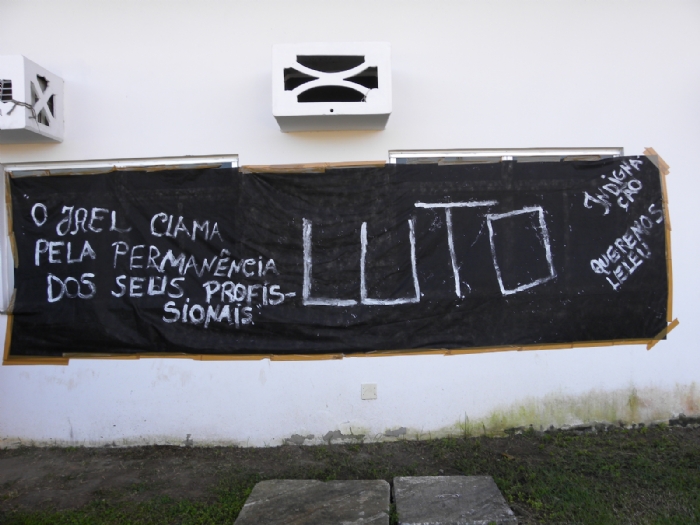 O JAEL CLAMA
PELA PERMANÊNCIA
DOS SEUS PROFIS-
SIONAIS
LUTO
INDIGNA-
ÇÃO
QUEREMOS
LELEI!